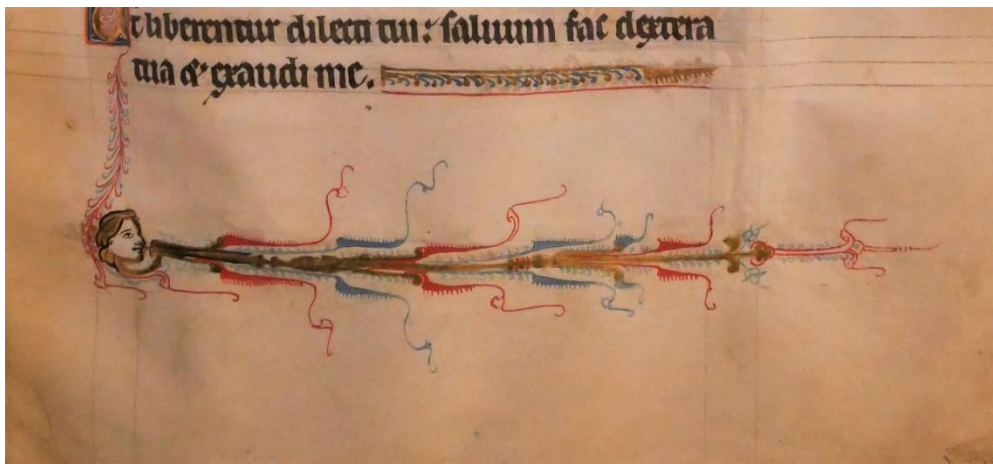 Et liberentur dilecti tui: saluum fac dextera
tua & exaudi me.